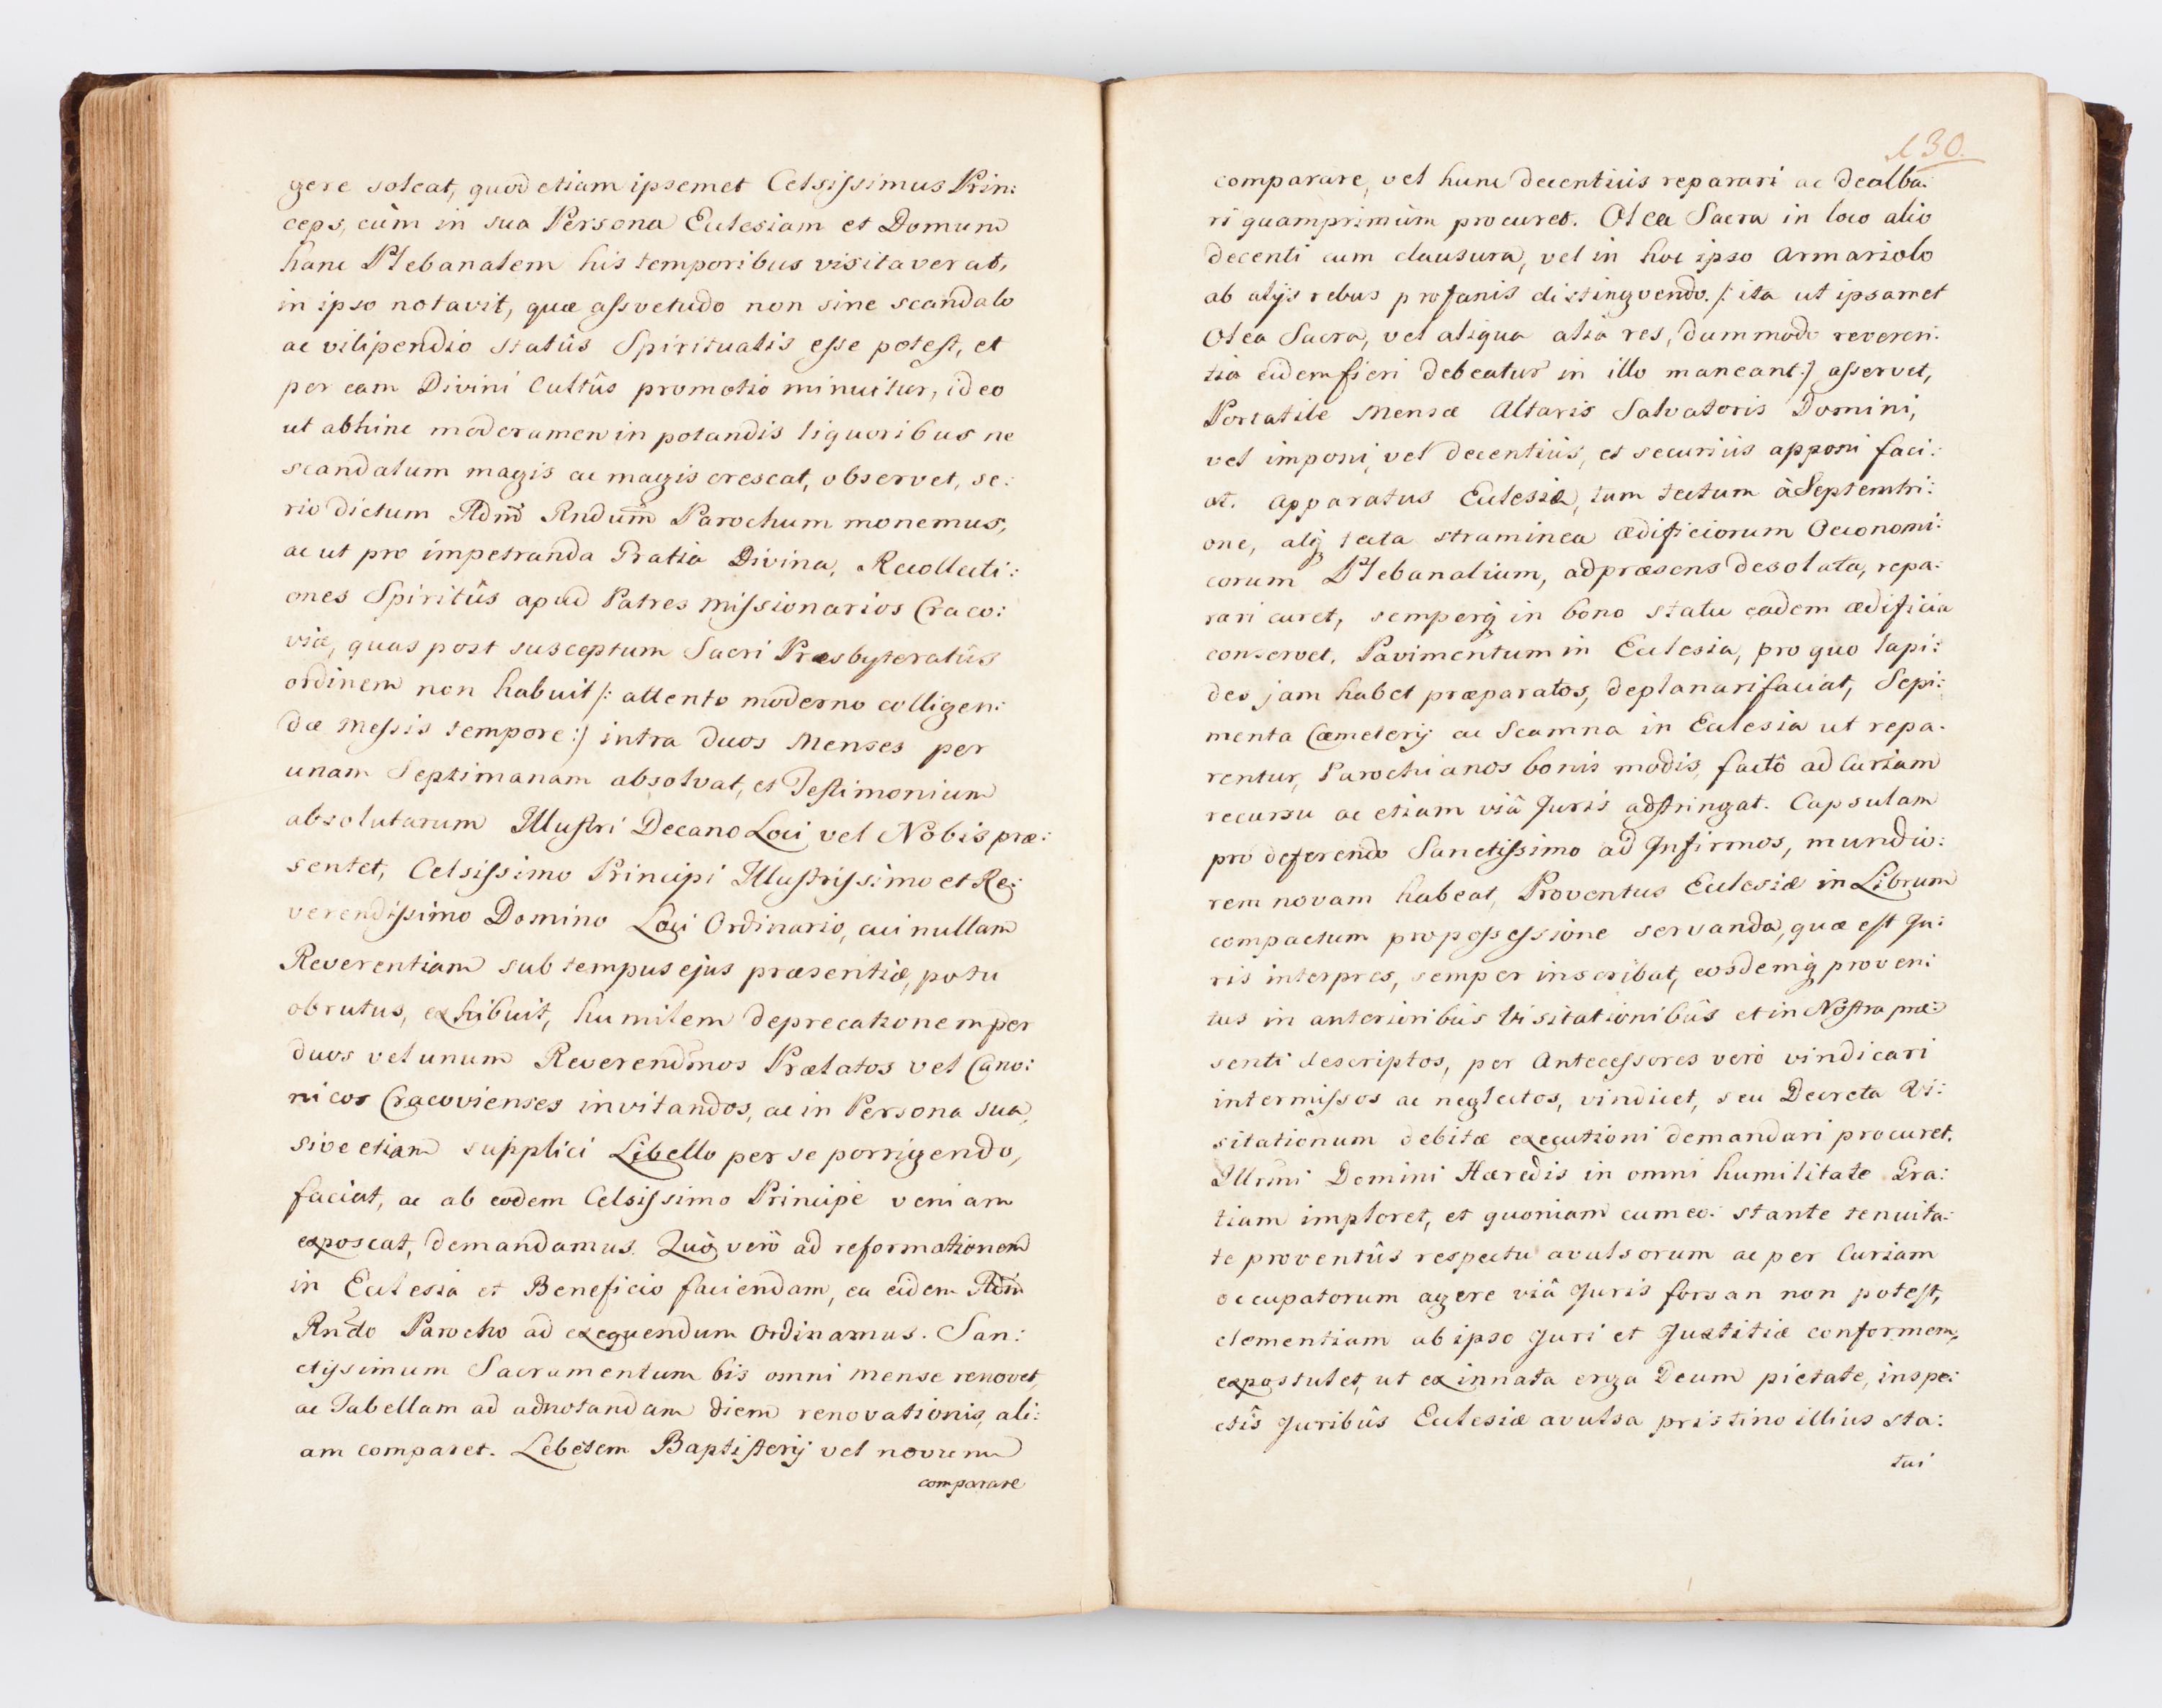 gere soleat, quod etiam ipsemet Celsissimus Prin:
ceps, cùm in sua Persona Ecclesiam et Domum
hanc Plebanalem his temporibus visitaverat,
in ipso notavit, quæ assvetudo non sine scandalo
ac vilipendio statûs Spiritualis esse potest, et
per eam Divini Cultûs promotio minuitur, ideo
ut abhinc moderamen in potandis liquoribus ne
scandalum magis ac magis crescat, observet, se:
rio dictum Admd Rndum Parochum monemus,
ac ut pro impetranda Gratia Divina, Recollecti:
ones Spiritûs apud Patres Missionarios Craco:
viæ, quas post susceptum Sacri Præsbyteratûs
ordinem non habuit /: attento moderno colligen:
dæ Messis tempore :/ intra duos Menses per
unam Septimanam absolvat, et Testimonium
absolutarum Illustri Decano Loci vel Nobis præ:
sentet, Celsissimo Principi Illustrissimo et Re:
verendissimo Domino Loci Ordinario, cui nullam
Reverentiam sub tempus ejus præsentiæ, potu
obrutus, exhibuit, humilem deprecationem per
duos vel unum Reverendmos Prælatos vel Cano:
nicos Cracovienses invitandos, ac in Persona sua,
sive etiam supplici Libello per se porrigendo,
faciat, ac ab eodem Celsissimo Principe veniam
exposcat, demandamus. Quò verò ad reformationem
in Ecclesia et Beneficio faciendam, ea eidem Adm
Rndo Parocho ad exequendum Ordinamus. San:
ctissimum Sacramentum bis omni mense renovet,
ac Tabellam ad adnotandam diem renovationis, ali:
am comparet. Lebetem Baptisterij vel novum
comparare
130.
comparare, vel hunc decentiùs reparari ac dealba:
ri quamprimùm procuret. Olea Sacra in loco alio
decenti cum clausura, vel in hoc ipso Armariolo
ab alijs rebus profanis distingvendo /: ita ut ipsamet
Olea Sacra, vel aliqua alia res, dummodo reveren:
tia eidem fieri debeatur in illo maneant :/ asservet,
Portatile Mensæ Altaris Salvatoris Domini,
vel imponi, vel decentiùs, et securiùs apponi faci:
at. Apparatus Ecclesiæ, tum tectum à Septemtri:
one, alq tecta straminea ædificiorum Oeconomi:
corum Plebanalium, ad præsens desolata, repa:
rari curet, semperq in bono statu eadem ædificia
conservet. Pavimentum in Ecclesia, pro quo lapi:
des jam habet præparatos, deplanari faciat, Sepi:
menta Cæmeterij ac Scamna in Ecclesia ut repa:
rentur, Parochianos bonis modis, factô ad Curiam
recursu ac etiam viâ Juris adstringat. Capsulam
pro deferendo Sanctissimo ad Infirmos, mundio:
rem novam habeat, Proventus Ecclesiæ in Librum
compactum pro possessione servanda, quæ est Ju:
ris interpres, semper inscribat, eosdemq proven:
tus in anterioribus Visitationibûs et in Nostra præ:
senti descriptos, per Antecessores verò vindicari
intermissos ac neglectos, vindicet, seu Decreta Vi:
sitationum debitæ executioni demandari procuret.
Illrmi Domini Hæredis in omni humilitate Gra:
tiam imploret, et quoniam cum eo: stante tenuita:
te proventûs respectu avulsorum ac per Curiam
occupatorum agere viâ Juris forsan non potest,
clementiam ab ipso Juri et Justitiæ conformem,
expostulet, ut ex innata erga Deum pietate, inspe:
ctis Juribûs Ecclesiæ avulsa pristino illius sta:
tui